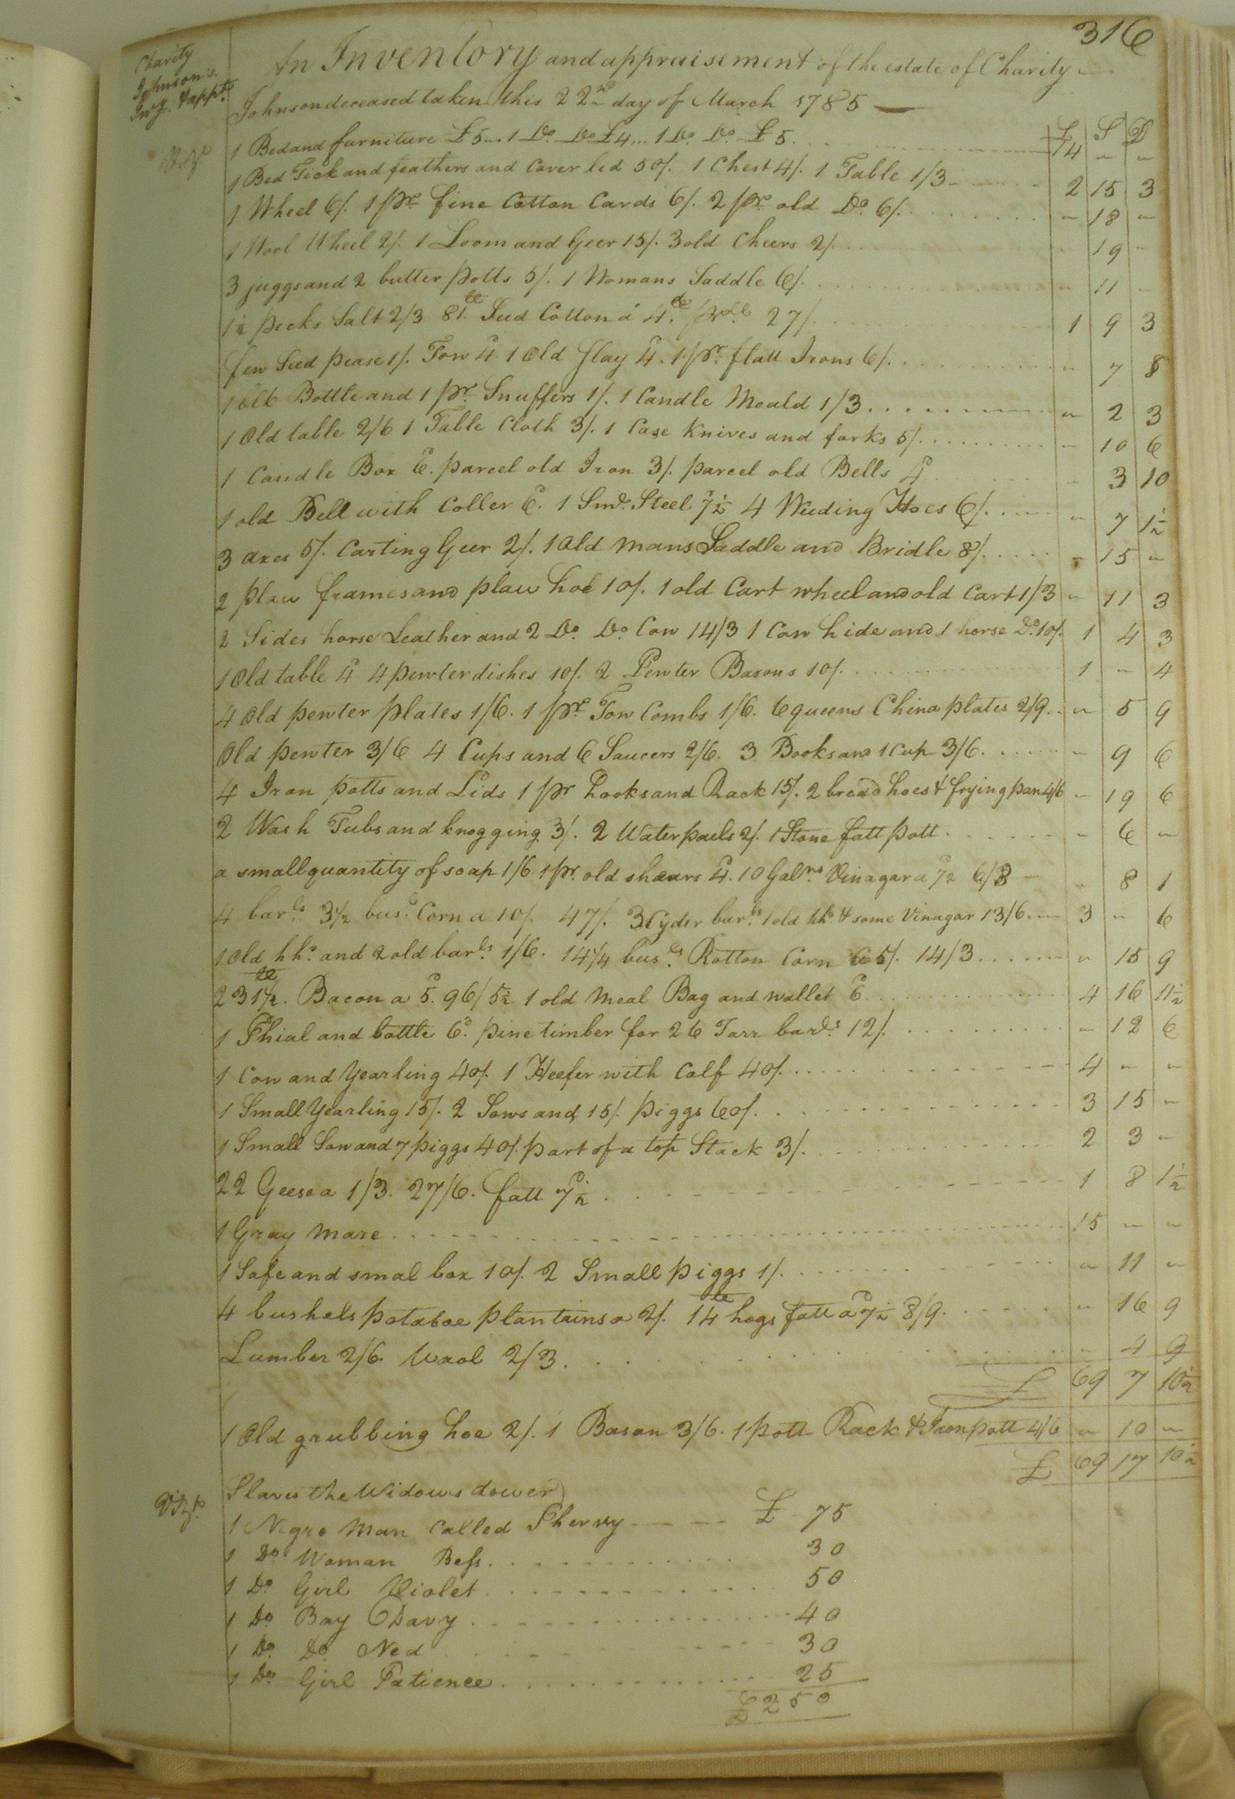 316
Charity
Johnson's
Inv.y & app.t
An Inventory and appraisement of the estate of Charity
Johnson deceased taken this 22nd day of March 1785
£ S D
1 Bed and furniture £5 - 1 Do Do £4 .. 1 Do Do £5 14 - -
1 Bed Tick and feathers and Coverled 50/. 1 Chest 4/. 1 Table 1/3 2 15 3
1 Wheel 6/. 1 pr fine Cotton Cards 6/. 2 pr old Do 6/. - 18 -
1 Wool Wheel 2/. 1 Loom and Geer 15/. 3 old Cheers 2/. - 19 -
3 juggs and 2 butter potts 5/. 1 Womans Saddle 6/. - 11 -
pecks Salt 2/3 81 lb Seed Cotton a 4d 27/. 1 9 3
few Seed pease 1/. Tow 4d 1 Old Slay 4d. 1 pr. flatt Irons 6/. - 7 8
Bottle and 1 pr Snuffers 1/. 1 Candle Mould 1/3 - 2 3
1 Old table 2/6 1 Table Cloth 3/. 1 Case Knives and forks 5/. - 10 6
1 Candle Box 6d. parcel old Iron 3/. parcel old Bells 4d - 3 10
1 old Bell with Coller 6d. 1 Steel 7½d 4 Weeding Hoes 6/. - 7 1½
3 axes 5/. Carting Geer 2/. 1 Old mans Saddle and Bridle 8/. - 15 -
2 plau frames and plau hoe 10/. 1 old Cart wheel and old Cart 1/3 - 11 3
2 Sides horse Leather and 2 Do Do Cow 14/3 1 Cow hide and 1 horse Do 10/. 1 4 3
1 Old table 4d 4 pewter dishes 10/. 2 Pewter Basons 10/. 1 - 4
4 Old pewter plates 1/6. 1 pr Tow Combs 1/6. 6 queens China plates 2/9. - 5 9
Old pewter 3/6 4 Cups and 6 Saucers 2/6. 3 Books and 1 Cup 3/6. - 9 6
4 Iron potts and Lids 1 pr Hooks and Rack 15/. 2 broad hoes & frying pan 4/6 - 19 6
2 Wash Tubs and knogging 3/. 2 Water paels 2/. 1 Stone fatt pott - 6 -
a small quantity of soap 1/6 1 pr. old shears 4d. 10 Galns Vinagar a 7½ 6/3 - 8 1
4 barls 3½ busls Corn a 10/. 47/. 3 Cyder barls 1 old hhd & some Vinagar 13/6 3 - 6
1 Old hhd and 2 old barls 1/6. 14¼ busls Rotton Corn 14/3 - 15 9
231½ lb. Bacon a 5d. 96/5½ 1 old Meal Bag and wallet 6d 4 16 11½
1 Phial and bottle 6d. pine timber for 26 Tarr barls 12/. - 12 6
1 Cow and Yearling 40/. 1 Heefer with Calf 40/. 4 - -
1 Small Yearling 15/. 2 Sows and 15 piggs 60/. 3 15 -
1 Small Sow and 7 piggs 40/. part of a top Stack 3/. 2 3 -
22 Geese a 1/3. 27/6. fatt 7½d 1 8 1½
1 Gray Mare 15 - -
1 Safe and smal box 10/. 2 Small piggs 1/. - 11 -
4 bushels potatoe plantains a 2/. 14 lb hogs fatt a 7½d 8/9. - 16 9
Lumber 2/6. Wool 2/3. - 4 9
£ 69 7 10½
1 Old grubbing hoe 2/. 1 Bason 3/6. 1 pott Rack & Iron pott 4/6 - 10 -
£ 69 17 10½
Slaves the Widows dower
1 Negro Man Called Shervy £ 75
1 Do Woman Bess 30
1 Do Girl Violet 50
1 Do Boy Davy 40
1 Do Do Ned 30
1 Do Girl Patience 25
£ 250